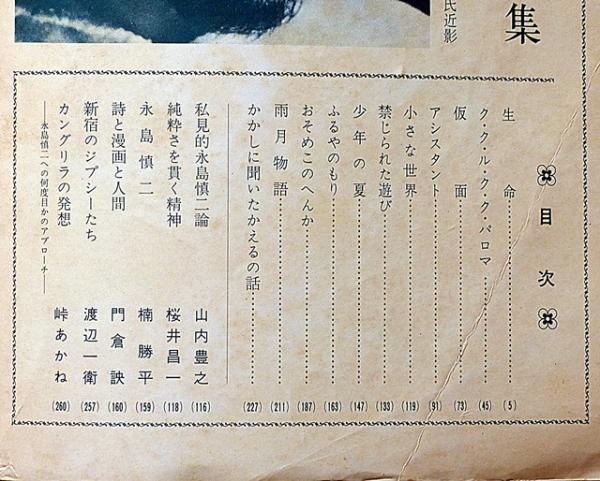 集
氏近影
目次
生命 (5)
ク・ク・ル・ク・ク・パロマ (45)
仮面 (73)
アシスタント (91)
小さな世界 (119)
禁じられた遊び (133)
少年の夏 (147)
ふるやのもり (163)
おそめこのへんか (187)
雨月物語 (211)
かかしに聞いたかえるの話 (227)
私見的永島慎二論 山内豊之 (116)
純粋さを貫く精神 桜井昌一 (118)
永島慎二 楠勝平 (159)
詩と漫画と人間 門倉訣 (160)
新宿のジプシーたち 渡辺一衛 (257)
カングリラの発想 峠あかね (260)
——永島慎二への何度目かのアプローチ——